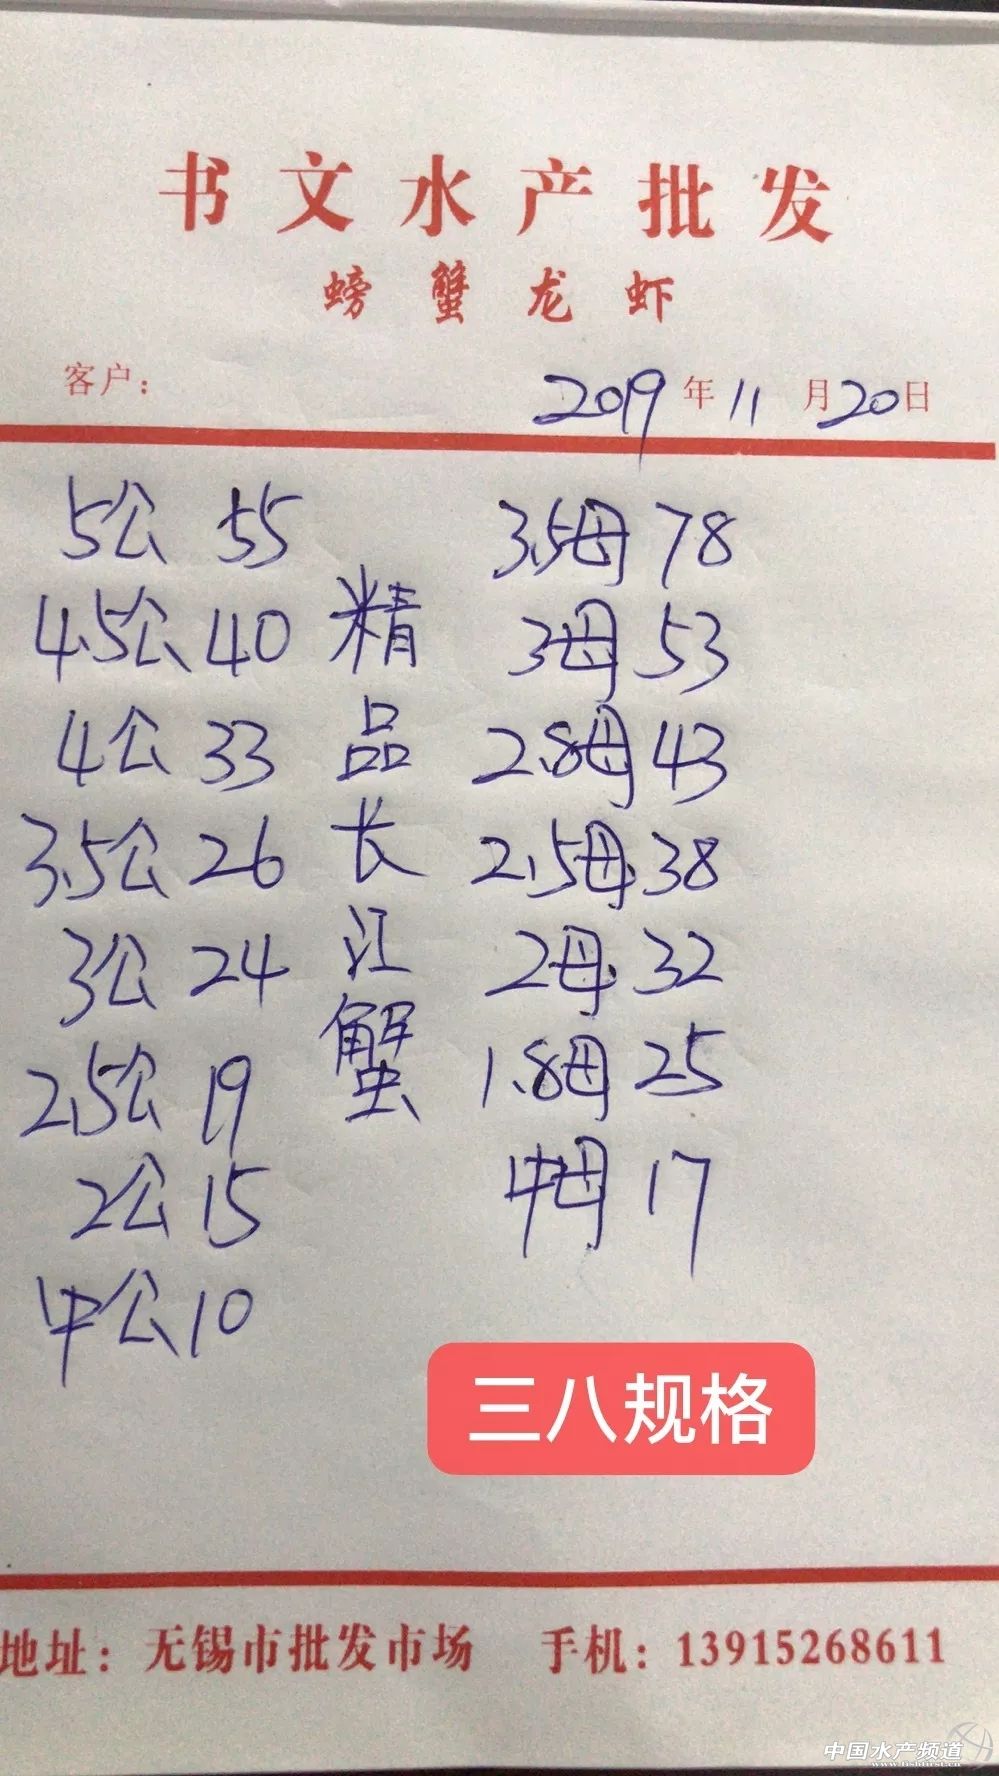 书文水产批发
螃蟹龙虾
客户：
2019年11月20日
5公 55
4.5公 40
4公 33
3.5公 26
3公 24
2.5公 19
2公 15
中公 10
精品长江蟹
3.5母 78
3母 53
2.8母 43
2.5母 38
2母 32
1.8母 25
中母 17
三八规格
地址：无锡市批发市场 手机：13915268611
中国水产频道
www.fishfirst.cn